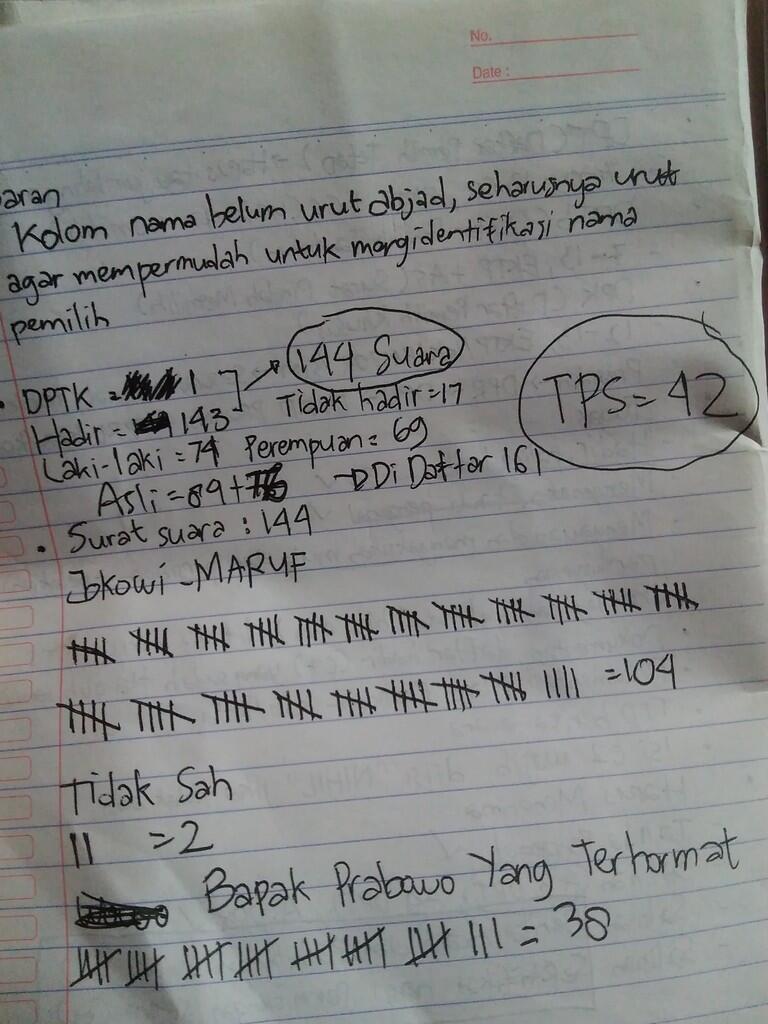 No.
Date :
aran
Kolom nama belum urut abjad, seharusnya urut
agar mempermudah untuk mengidentifikasi nama
pemilih
• DPTK = 1 144 Suara
Hadir = 143 Tidak hadir = 17
TPS = 42
Laki-laki = 74 Perempuan = 69
Asli = 89 + → Di Daftar 161
• Surat suara : 144
Jokowi - MARUF
= 104
Tidak Sah
11 = 2
Bapak Prabowo Yang Terhormat
= 38